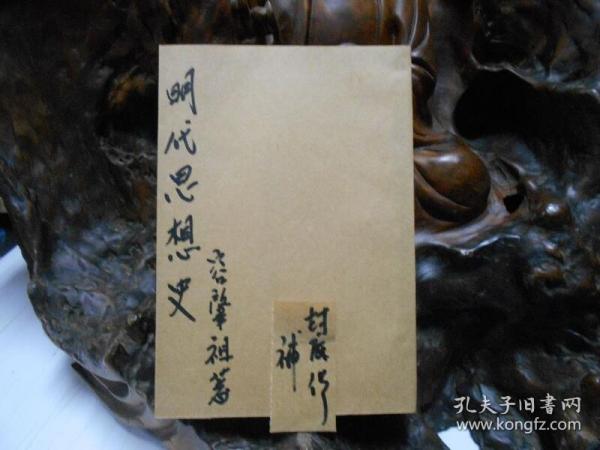 明代思想史
容肇祖著
封改修
補
孔夫子旧書网
www.kongfz.com